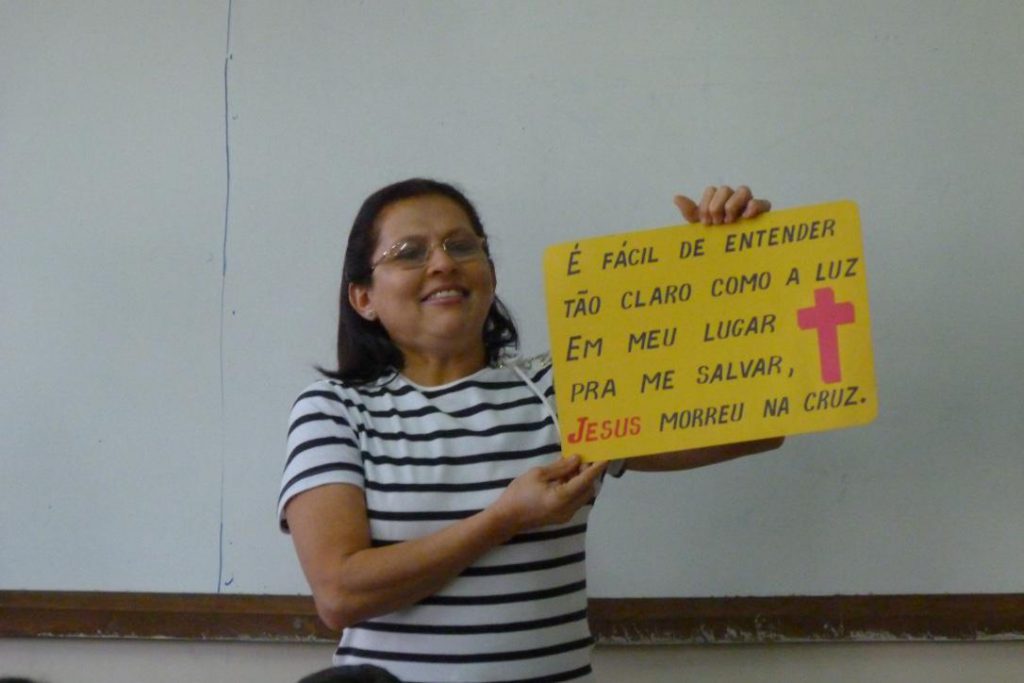 É FÁCIL DE ENTENDER
TÃO CLARO COMO A LUZ
EM MEU LUGAR
PRA ME SALVAR,
JESUS MORREU NA CRUZ.